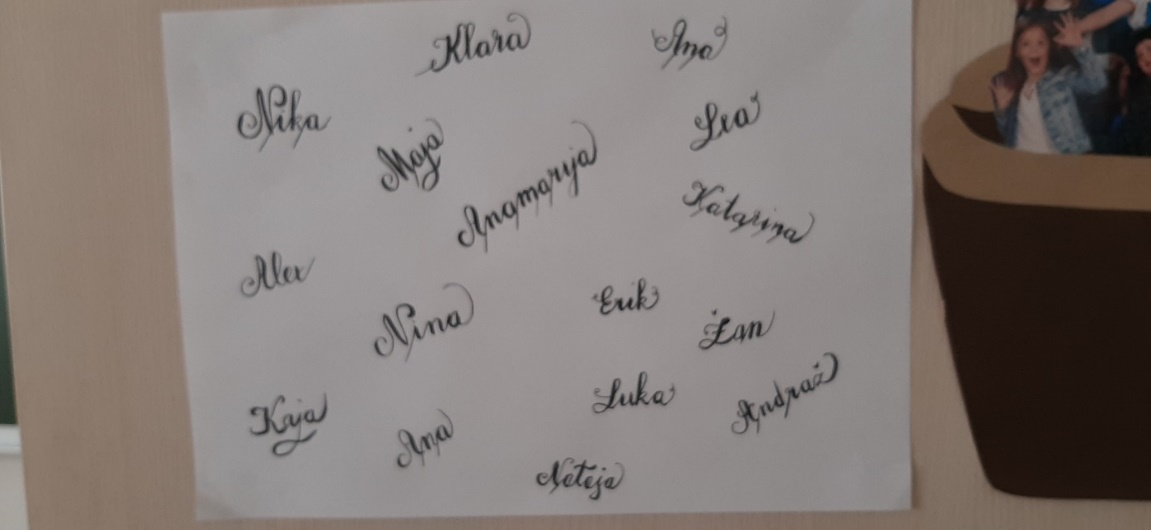 Klara
Ana
Nika
Maja
Lea
Anamarija
Katarina
Alex
Nina
Erik
Žan
Kaja
Luka
Andraž
Ana
Neteja